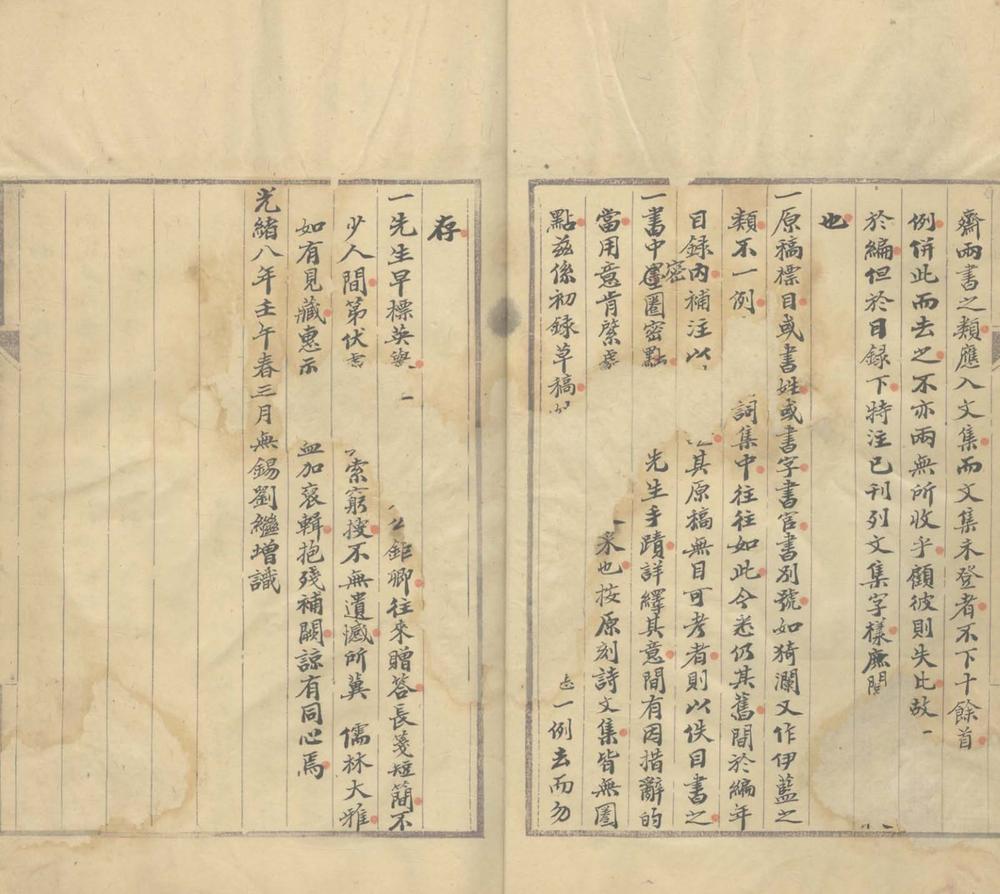 齋兩書之類應入文集而文集未登者不下十餘首
例併此而去之不亦兩無所收乎顧彼則失比故一
於編但於目録下特注已刊列文集字樣庶閱
也
一原稿標目或書姓或書字書官書别號如猗瀾又作伊藍之
類不一例 詞集中往往如此今悉仍其舊間於編年
目録内補注以 其原稿無目可考者則以佚目書之
一書中密圈密點 先生手蹟詳繹其意間有因措辭的
當用意肯綮處 来也按原刻詩文集皆無圈
點兹係初録草稿 一例去而勿
存
一先生早標英譽 一 公鉅卿往來贈答長箋短簡不
少人間第伏處 索窮搜不無遺憾所冀 儒林大雅
如有見藏惠示 加裒輯抱殘補闕諒有同心焉
光緒八年壬午春三月無錫劉繼增識